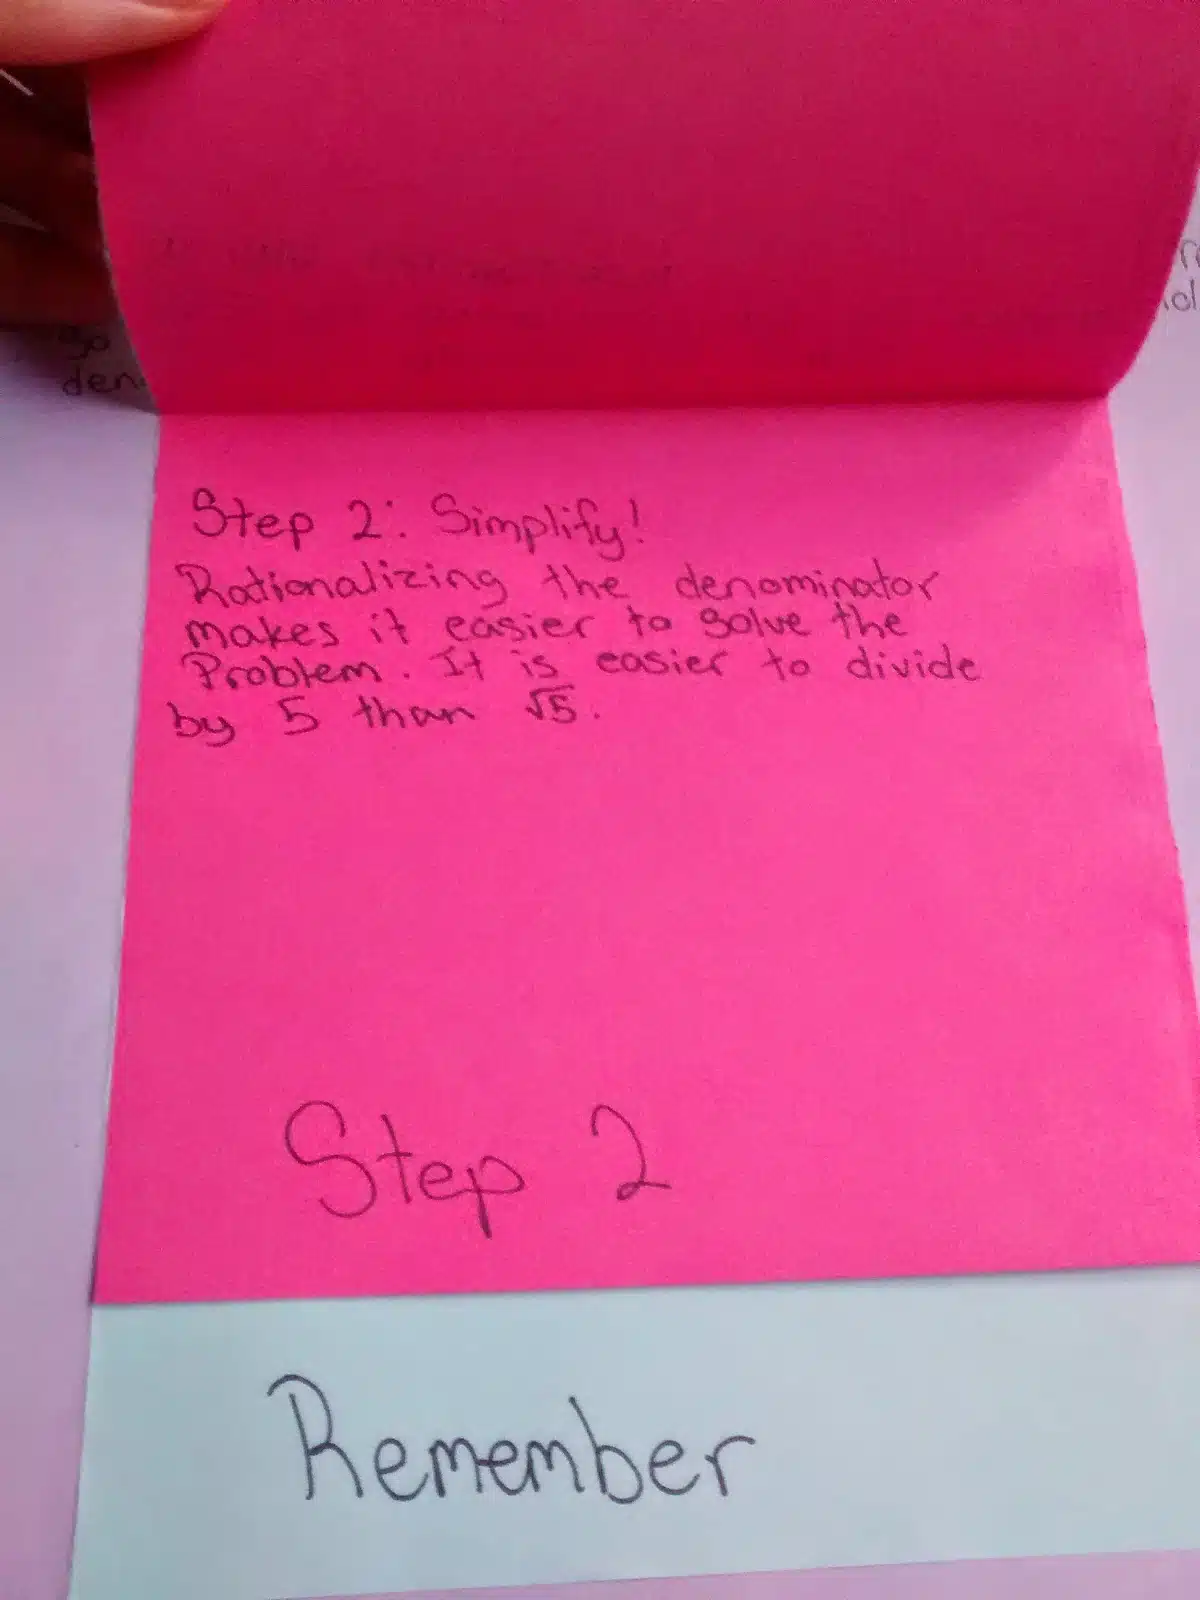 go
den
Step 2: Simplify!
Rationalizing the denominator
makes it easier to solve the
Problem. It is easier to divide
by 5 than √5.
Step 2
Remember